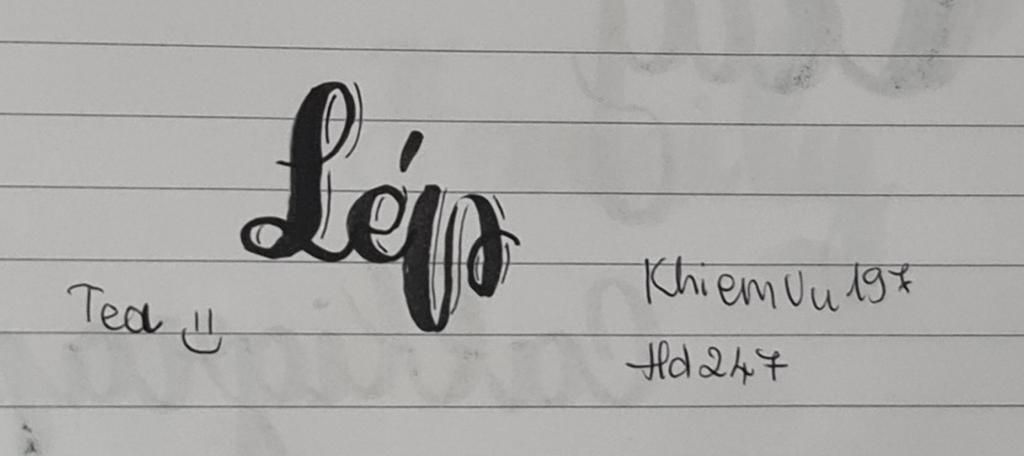 Lép
Tea
KhiemVu197
Hd247